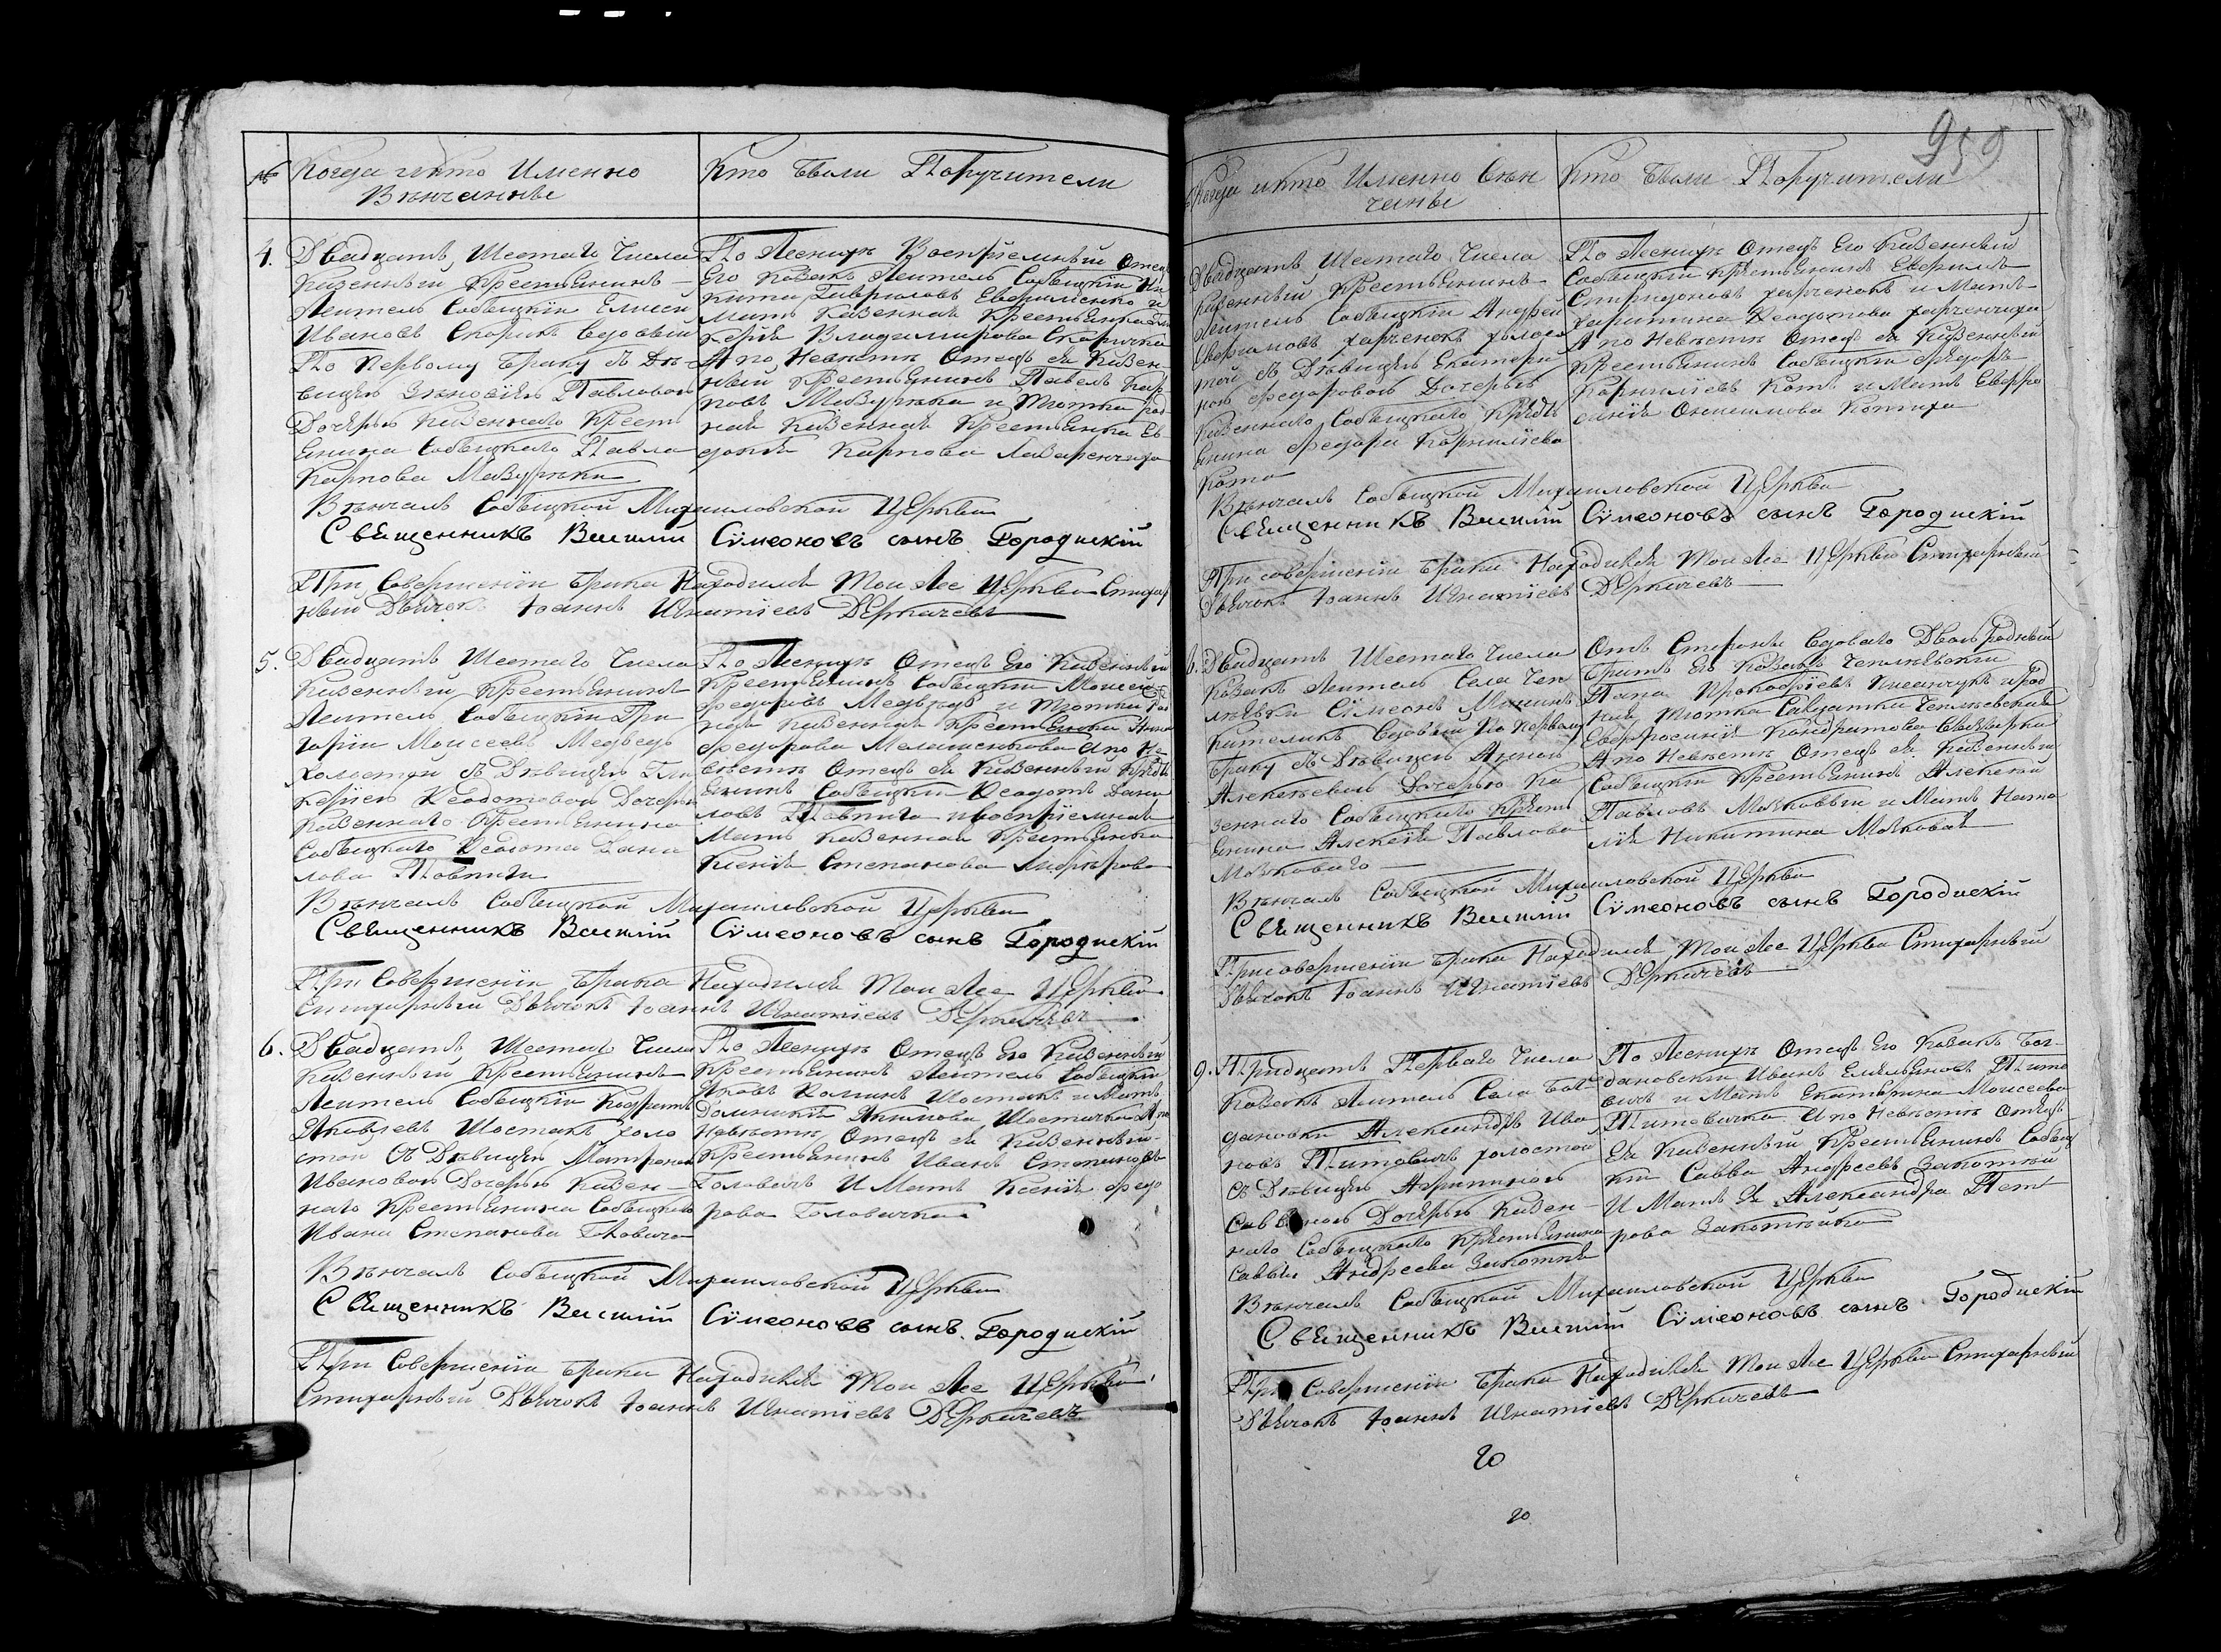 959
№
Когда и кто Именно
Вѣнчанны
Кто были Поручители
4.
Двадцать Шестаго Числа
Казенный Крестьянинъ
Житель Собыцкій Елисей
Ивановъ Скорикъ вдовый
По Первому браку съ Дѣ-
вицею Зѣновіею Павловою
Дочерью Казеннаго Кресть
янина Собыцкаго Павла
Карпова Мазурка
По Женихѣ Воспріемный Отецъ
Его Козакъ Житель Собыцкій Ни
кита Гавриловъ Евфименко и
Мать Казенная Крестьянка
Владимирова Скоричка
А по Невѣстѣ Отецъ ея Казен
ный Крестьянинъ Павелъ Кар
повъ Мазурка и Тютка род
ная Казенная Крестьянка Ев-
докія Карпова Лазаренчиха
Вѣнчалъ Собыцкой Михаиловской Церкви
Священникъ Василій Сѵмеоновъ сынъ Городискій
При Совершеніи брака Находился Той же Церкви Стихар
ный Дьячокъ Іоаннъ Игнатіевъ Деркачевъ
5.
Двадцать Шестаго Числа
Казенный Крестьянинъ
Житель Собыцкій Гри
горій Моисеевъ Медведь
Холостой съ Дѣвицею Гли
керіею Ѳеодотовою Дочерью
Казеннаго Крестьянина
Собыцкаго Ѳеодота Дани
лова Товпиги
По Женихѣ Отецъ Его Казенный
Крестьянинъ Собыцкій Моисей
Федоровъ Медвѣдь и Тютка род
ная Казенная Крестьянка Анна
Федорова Мелашенкова А по Не
вѣстѣ Отецъ ея Казенный Кресть
янинъ Собыцкій Ѳеодотъ Дани
ловъ Товпига и воспріемная
Мать Казенная Крестьянка
Ксенія Степанова
Вѣнчалъ Собыцкой Михаиловской Церкви
Священникъ Василій Сѵмеоновъ сынъ Городискій
При Совершеніи брака Находился Той же Церкви
Стихарный Дьячокъ Іоаннъ Игнатіевъ Деркачевъ
6.
Двадцать Шестаго Числа
Казенный Крестьянинъ
Житель Собыцкій Кодратъ
Яковлевъ Шостакъ холо
стой Съ Дѣвицею Матроною
Ивановою Дочерью Казен-
наго Крестьянина Собыцкаго
Ивана Степанова Головача
По Женихѣ Отецъ Его Казенный
Крестьянинъ Житель Собыцкій
Яковъ Хоминъ Шостакъ и Мать
Домникія Якимова Шостачка А по
Невѣстѣ Отецъ ея Казенный
Крестьянинъ Иванъ Степановъ
Головачъ И Мать Ксенія Федо
рова Головачка
Вѣнчалъ Собыцкой Михаиловской Церкви
Священникъ Василій Сѵмеоновъ сынъ Городискій
При Совершеніи брака Находился Той же Церкви
Стихарный Дьячокъ Іоаннъ Игнатіевъ Деркачевъ
Когда и кто Именно Вѣн
чаны
Кто были Поручители
Двадцать Шестаго Числа
Казенный Крестьянинъ
Житель Собыцкій Андрей
Евфимовъ Харченокъ холос
той съ Дѣвицею Екатери
ною Федоровою Дочерью
Казеннаго Собыцкаго Кресть
янина Федора Корнилієва
Кота
По Женихѣ Отецъ Его Казенный
Собыцкій Крестьянинъ Евфимъ
Спиридоновъ Харченокъ и Мать
Харитина Ѳеодотова Харченчиха
А по Невѣстѣ Отецъ ея Казенный
Крестьянинъ Собыцкій Федоръ
Корниліевъ Котъ и Мать Евфро
синія Онисимова Котиха
Вѣнчалъ Собыцкой Михаиловской Церкви
Священникъ Василій Сѵмеоновъ сынъ Городискій
При совершеніи брака Находился Той же Церкви Стихарный
Дьячокъ Іоаннъ Игнатіевъ Деркачевъ
8.
Двадцать Шестаго Числа
Козакъ Житель Села Чеп
лѣевки Сѵмеонъ Мининъ
вдовый По первому
браку съ Дѣвицею Анною
Алексѣевою Дочерью Ка
зеннаго Собыцкаго Кресть
янина Алексѣя Павлова
Отъ Стороны вдоваго Двоюродный
братъ Его Козакъ Чеплѣевскій
Прокофіевъ и род
ная Тютка Солдатка Чеплѣевская
Евфросинія Кондратова
А по Невѣстѣ Отецъ ея Казенный
Собыцкій Крестьянинъ Алексѣй
Павловъ и Мать Ната
лія Никитина
Вѣнчалъ Собыцкой Михаиловской Церкви
Священникъ Василій Сѵмеоновъ сынъ Городискій
При совершеніи брака Находился Той же Церкви Стихарный
Дьячокъ Іоаннъ Игнатіевъ Деркачевъ
9.
Тридцать Перваго Числа
Козакъ Житель Села Бог
дановки Александръ Ива
новъ Титовичъ холостой
съ Дѣвицею Агрипиною
Саввиною Дочерью Казен-
наго Собыцкаго Крестьянина
Саввы Андреева
По Женихѣ Отецъ Его Козакъ Бог-
дановскій Иванъ Емельяновъ Тито
вичъ и Мать Екатерина Моисеева
Титовичка А по Невѣстѣ Отецъ
Ея Казенный Крестьянинъ Собыц
кій Савва Андреевъ
И Мать Ея Александра Пет
рова
Вѣнчалъ Собыцкой Михаиловской Церкви
Священникъ Василій Сѵмеоновъ сынъ Городискій
При Совершеніи брака Находился Той же Церкви Стихарный
Дьячокъ Іоаннъ Игнатіевъ Деркачевъ
20
20